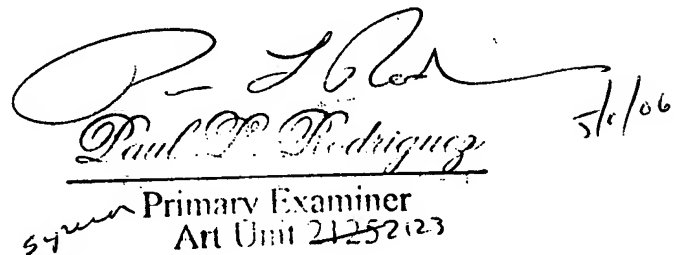 Paul L. Rodriguez
5/1/06
Primary Examiner
Art Unit 2125 2123